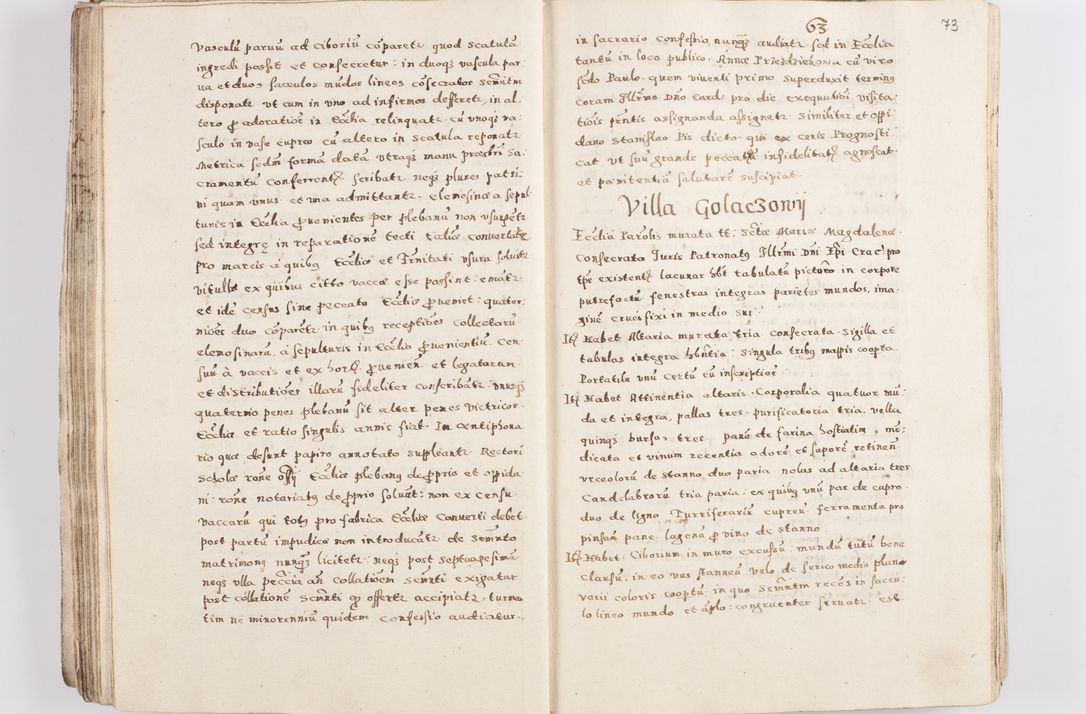 Vasculū parvū ad Ciboriū cōparetr quod scatulā
ingredi possit et consecretur: in duoqȝ vascula par
va et duos sacculos mūdos lineos cōsecratos semītm
disponatr ut cum in uno ad infirmos defferetr, in al
tero ꝑ adoratiōe in Eccłia relinquatr. cū unoqȝ va
sculo in vase cupreo cū altero in scatula reponatr
Metrica sedm formā datā utraqȝ manu praesbri Sa
cramentū conferrentȝ. scribatr neqȝ plures patri
ni quam unus et una admittantr. Elemosinae a sepul
turis in Eccłia ꝓvenientes per plebanū non usurpetr
sed integrę in reparationē tecti Eccłiae convertatr
pro marcis a quibȝ Eccłiae et Trinitati usura solvitr
vitullae ex quibus citto vaccae esse possint. emātr
et idē census sine peccato Eccłiae ꝓveniet: quater
niōes duo cōparetr in quibȝ receptiōes collectarū
elemosinarū, a sepulturis in Eccłia ꝓvenientiū. Cen
suū à vaccis et ex hortȝ ꝓvemen. et legatorum
et distributiōes illarū fideliter conscribatr. unusqȝ
quaternio penes plebanū sit alter penes victricos
Eccłiae et ratio singulis annis fiat. In Antiphona
rio quae desunt papiro annotato suppleantr. Rectori
scholae rōne offȳ Eccłiae plebanȝ de ꝓprio et oppida
ni: rōne notariatȝ de ꝓprio solvāt: non ex censu
vaccarū qui totȝ pro fabrica Eccłiae converti debet
post partū impudicae non introducātr de Semīnto
matrimony nunqȝ licitetr: neqȝ post septuagesimā
neqȝ ulla peccīa añ collatiōem semīti exigatur
post collatione semīti qȝ offertr accipiatr. turma
tim ne minorenniū quidem confessio audiatur.
63
73
in sacrario Confessio nunqȝ audiatr sed in Eccłia
tantū in loco publico. Annae Przezdziekowa cū viro
sedo Paulo. quem viventi primo superduxit terminȝ
coram Illrmo Dño Card: pro die exequutiōi visita
tiōis pn̄tis assignanda assignetr similiter et oppi
dano Stanislao Pis dicto. qui ex ceris Prognosti
cat ut suū grande peccatū infidelitatȝ agnoscat.
et paenitentiā salutarē suscipiat.
Villa Golaczowy
Eccłia Parolis murata tt: Sctae Mariae Magdalenae.
Consecrata Juris Patronatȝ Illrmi Dñi Epi Crac: pro
tpe existentȝ lacunar hbt tabulatū picturo in corpore
putrefactū fenestras integras parietes mundos, ima
ginē crucifixi in medio sui
Itȝ Habet Altaria murata tria consecrata. Sigilla et
tabulas integra hbñtia: singula tribȝ mappis cooperta
Portatile unū Certū cū inscriptioe
Itȝ Habet Attinentia altaris. Corporalia quatuor mū
da et integra, pallas tres. purificatoria tria. vella
quinqȝ bursas tres. panē de farina hostiatim. me:
dicata et vinum recentia odorē et saporē retineñ.
Urceolorū de stanno duo paria. nolas ad altaria tres
Candelabrorū tria paria: ex quibȝ unū par de cupro.
duo de ligno. Turriferariū cupreū ferramenta pro
pinsān. pane. lagenā ꝑ vino de stanno
Itȝ Habet: Ciborium in muro excussū: mundū tutū bene
Clausū. in eo vas stanneū velo de serico medio plano
varii coloris cooptū. in quo Semīntm recēs in saccu:
lo lineo mundo et āplo: congruenter servatr. Est